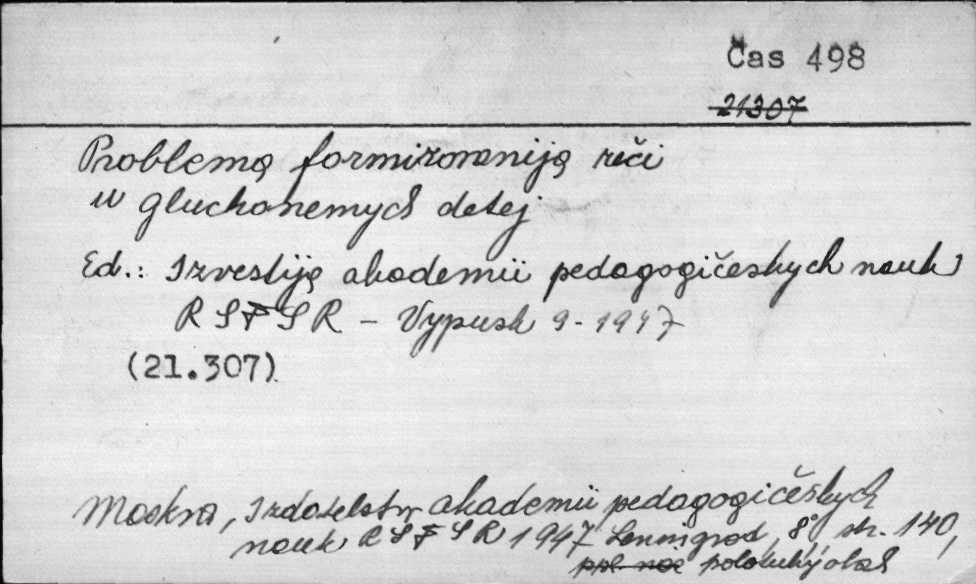 Čas 498
21307
Problemą formirovaniją reči
w gluchonemych detej
Ed.: Izvestiją akademii pedagogičeskych nauk
RSFSR – Vypusk 9 - 1947
(21.307)
Moskva, Izdatelstv akademii pedagogičeskych
nauk RSFSR 1947 Leningrad, 8° str. 140,
ppl noč polotuhý obal